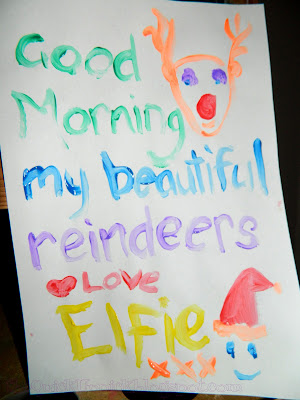 Good
Morning
my beautiful
reindeers
Love
Elfie
xxx